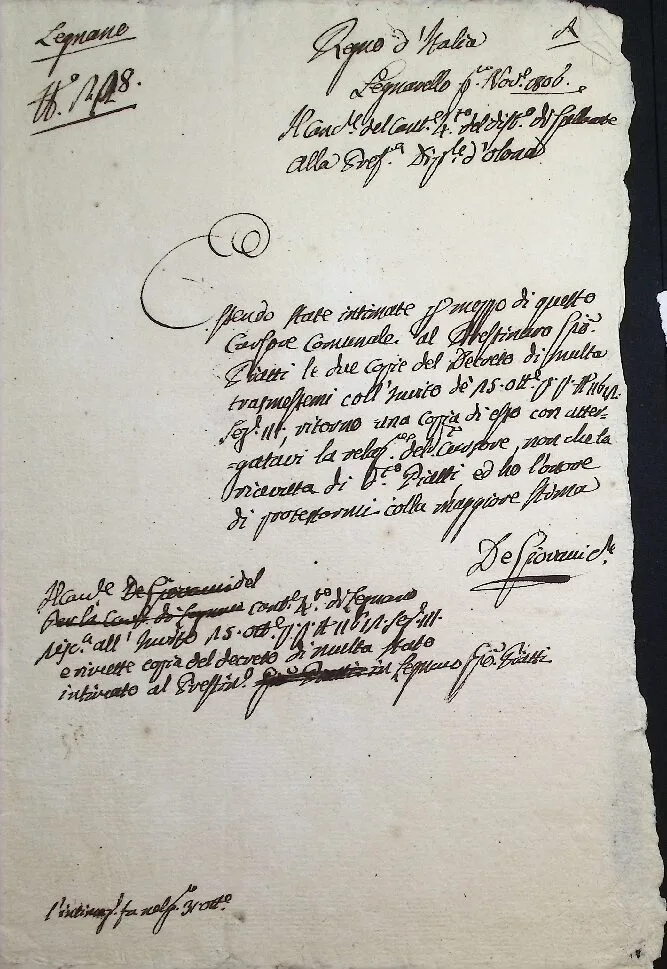 Legnano
N.° 1248.
A
Regno d'Italia
Legnarello p.mo Nov.e 1806.
Il Canc.e del Cant.e 4.to del dist.o di Gallarate
Alla Pref.a Dip.le d'Olona
Essendo state intimate p mezzo di questo
Cursore Comunale al Prestinaro Gio.
Piatti le due copie del Decreto di multa
trasmessemi coll'Invito de' 15. ott.e p. p. N.°
Sez.e III, ritorno una copia di esso con atter-
-gatavi la relaz.e del Cursore, non che la
ricevuta di d.to Piatti ed ho l'onore
di protestarmi colla maggiore stima
De Giovani C.re
Il Canc.e De Giovani del
Cant.e 4.to di Legnano
all'Invito 15. ott.e p. p. N.° Sez.e III.
e rimette copia del decreto di multa stato
intimato al Prestin.o in Legnano Gio. Piatti
l'intimaz.e fu nel g.no 31 ott.e